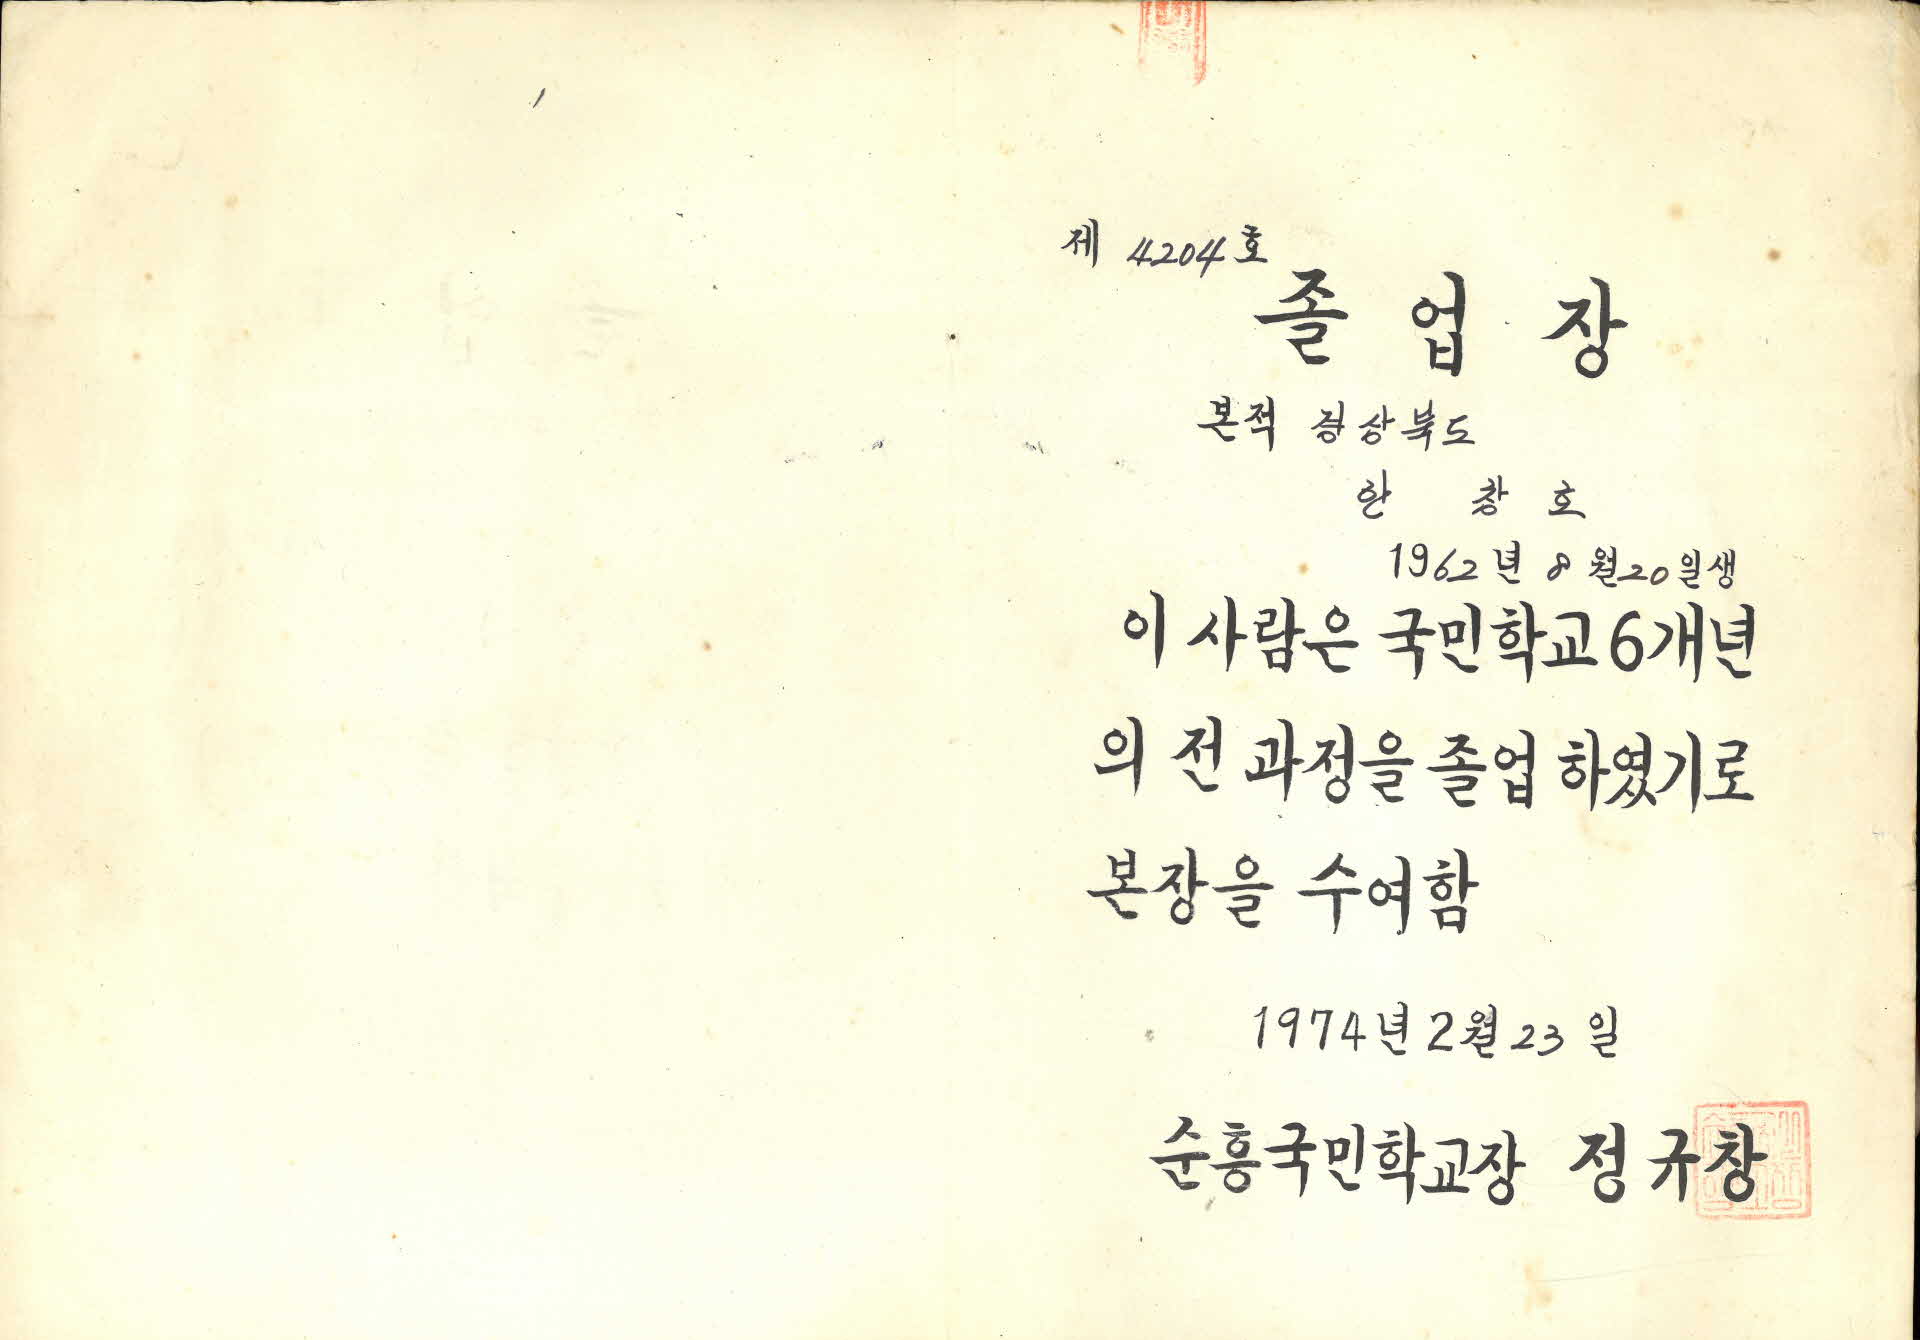 제 4204호
졸업장
본적 경상북도
한 창호
1962년 8월 20일생
이 사람은 국민학교 6개년
의 전 과정을 졸업 하였기로
본장을 수여함
1974년 2월 23일
순흥국민학교장 정규창